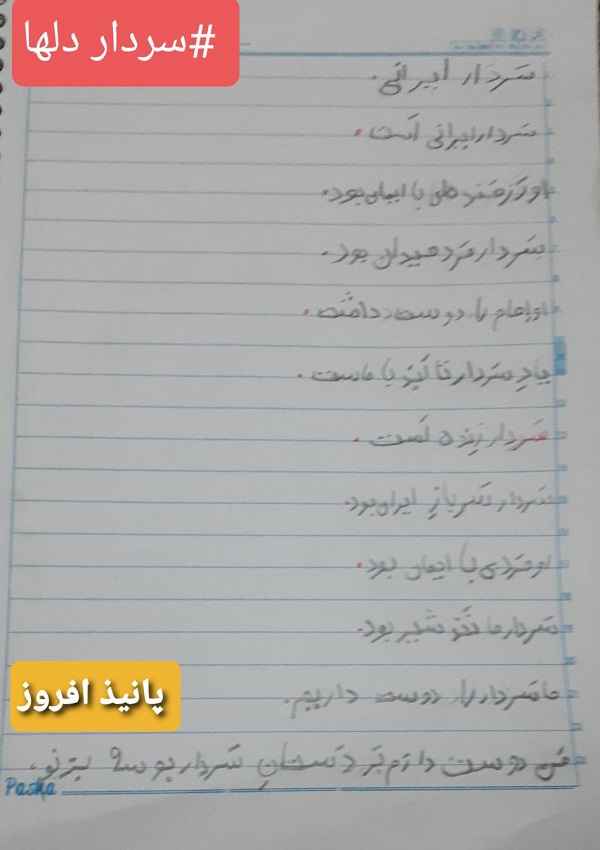 #سردار دلها
سَردار ایرانی.
سَردار ایرانی اَست.
او رَزمَنده‌ای با ایمان بود.
سَردار مَرد میدان بود.
او امام را دوست داشت.
یادِ سَردار تا اَبَد با ماست.
سَردار زِنده اَست.
سَردار سَربازِ ایران بود.
او مَردی با ایمان بود.
سَردار ما نَتَرس بود.
ما سَردار را دوست داریم.
مَن دوست دارَم بَر دَستانِ سَردار بوسه بزنم.
پانیذ افروز
Pasha